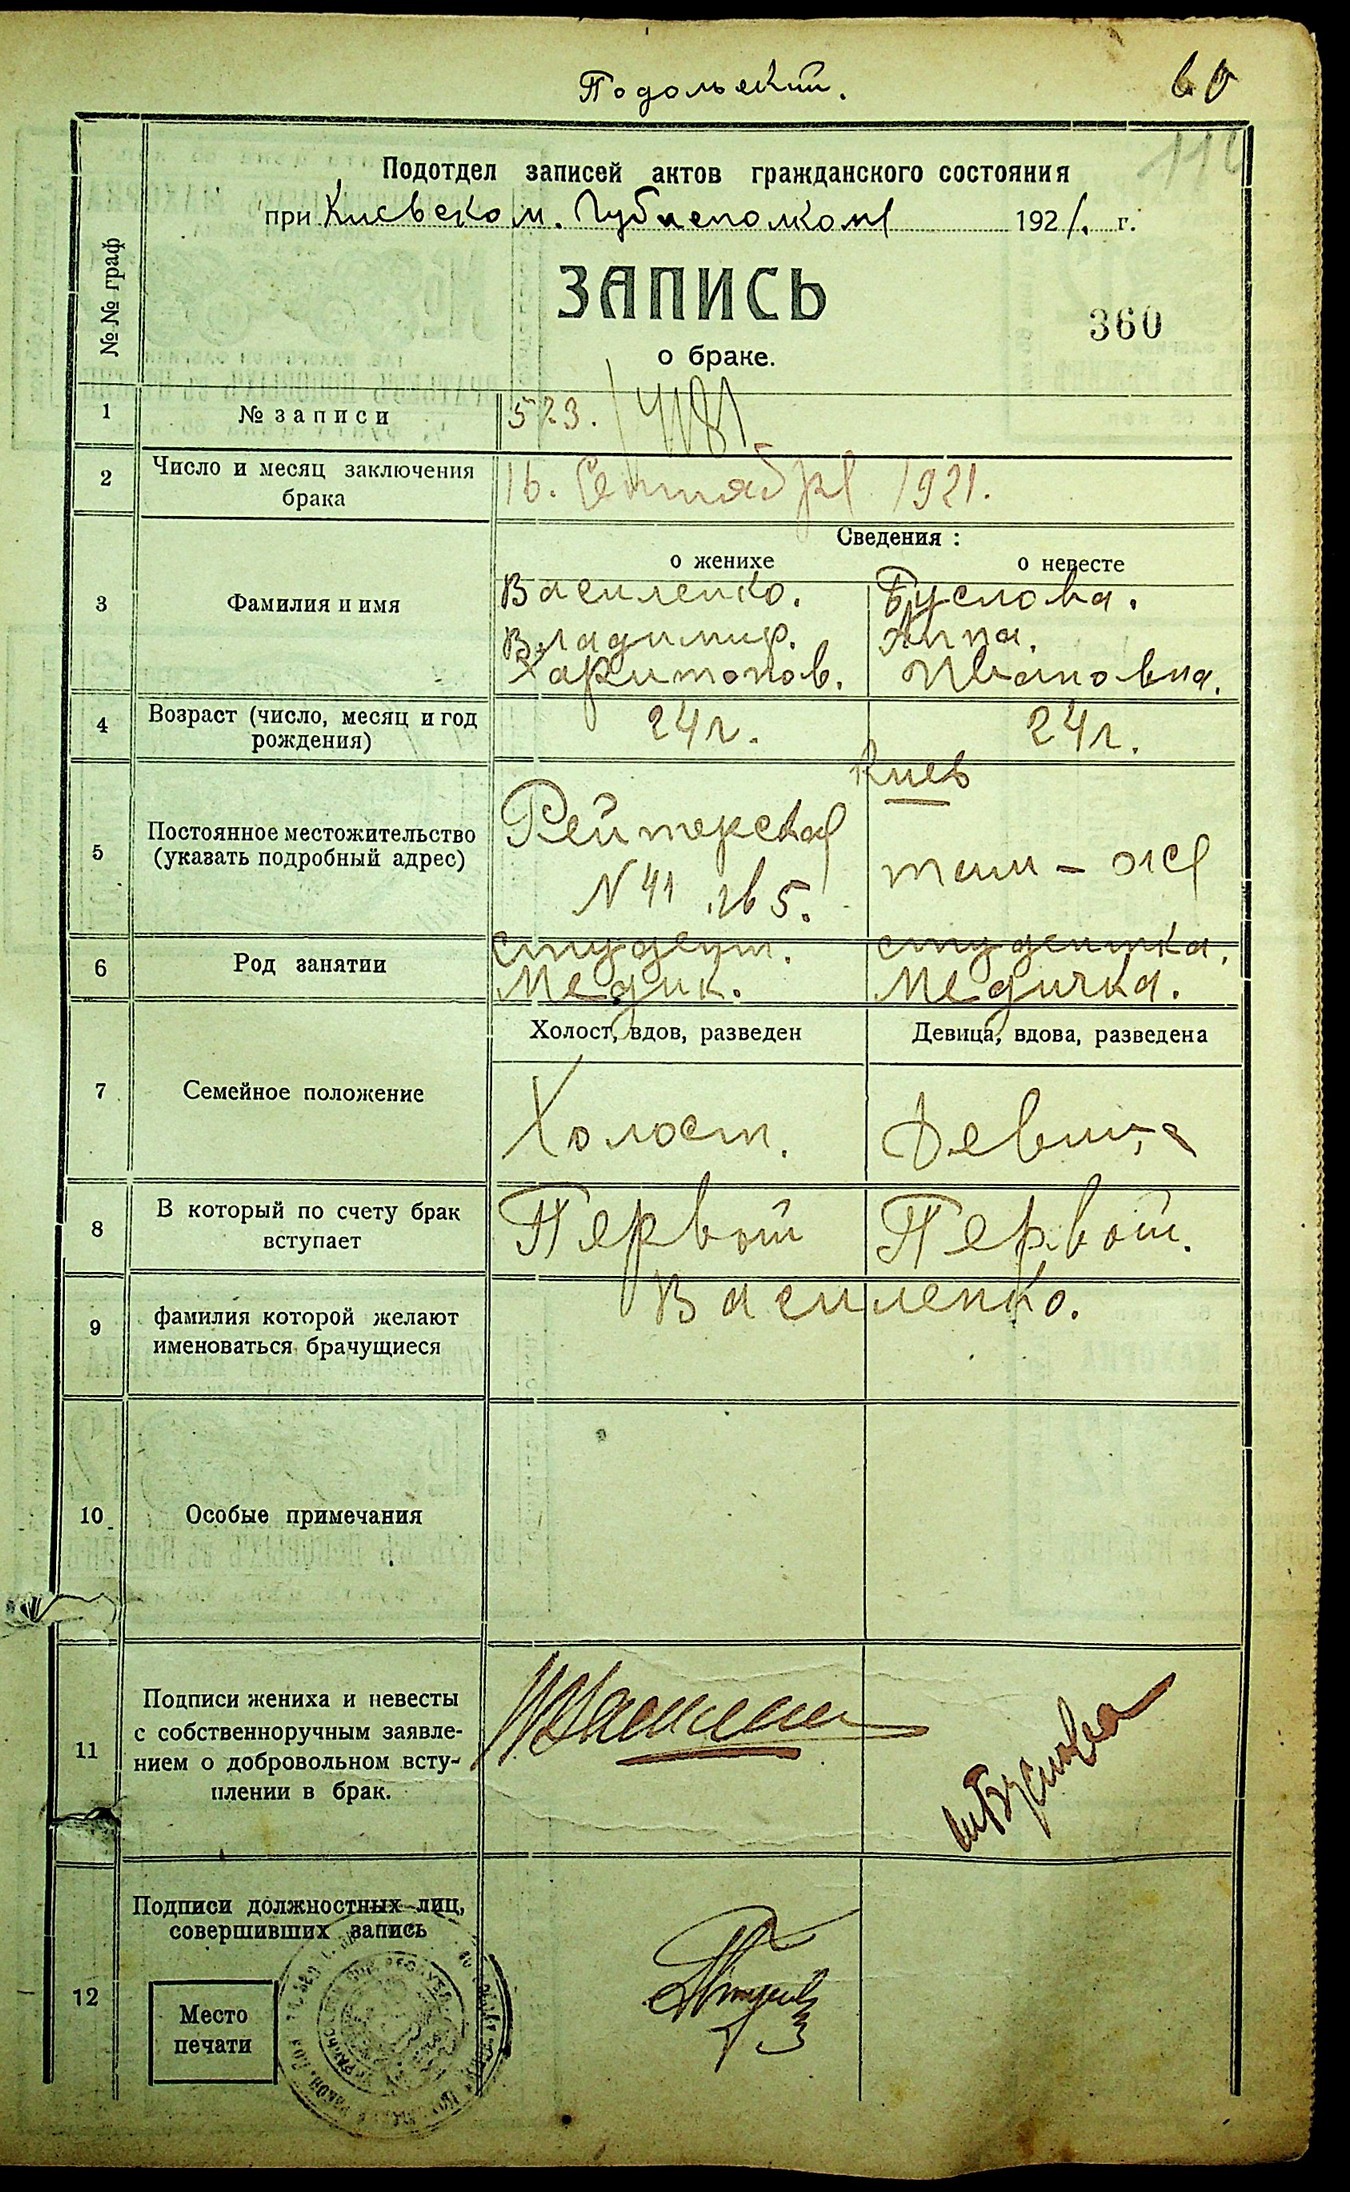 Подольский.
60
Подотдел записей актов гражданского состояния
при Киевском. Губисполкоме 1921. г.
ЗАПИСЬ
360
о браке.
№№ граф
1 № записи 523.
2 Число и месяц заключения
брака
16. Сентября 1921.
Сведения :
о женихе о невесте
3 Фамилия и имя
Василенко. Буслова.
Владимир. Анна.
Харитонов. Ивановна.
4 Возраст (число, месяц и год
рождения)
24 г. 24 г.
Киев
5 Постоянное местожительство
(указать подробный адрес)
Рейтерская
N 41 кв 5.
там - же
6 Род занятии
студент. студентка.
Медик. Медичка.
Холост, вдов, разведен Девица, вдова, разведена
7 Семейное положение
Холост. Девица
8 В который по счету брак
вступает
Первой Первой.
9 фамилия которой желают
именоваться брачущиеся
Василенко.
10 Особые примечания
11 Подписи жениха и невесты
с собственноручным заявле-
нием о добровольном всту-
плении в брак.
Буслова
12 Подписи должностных лиц,
совершивших запись
Место
печати